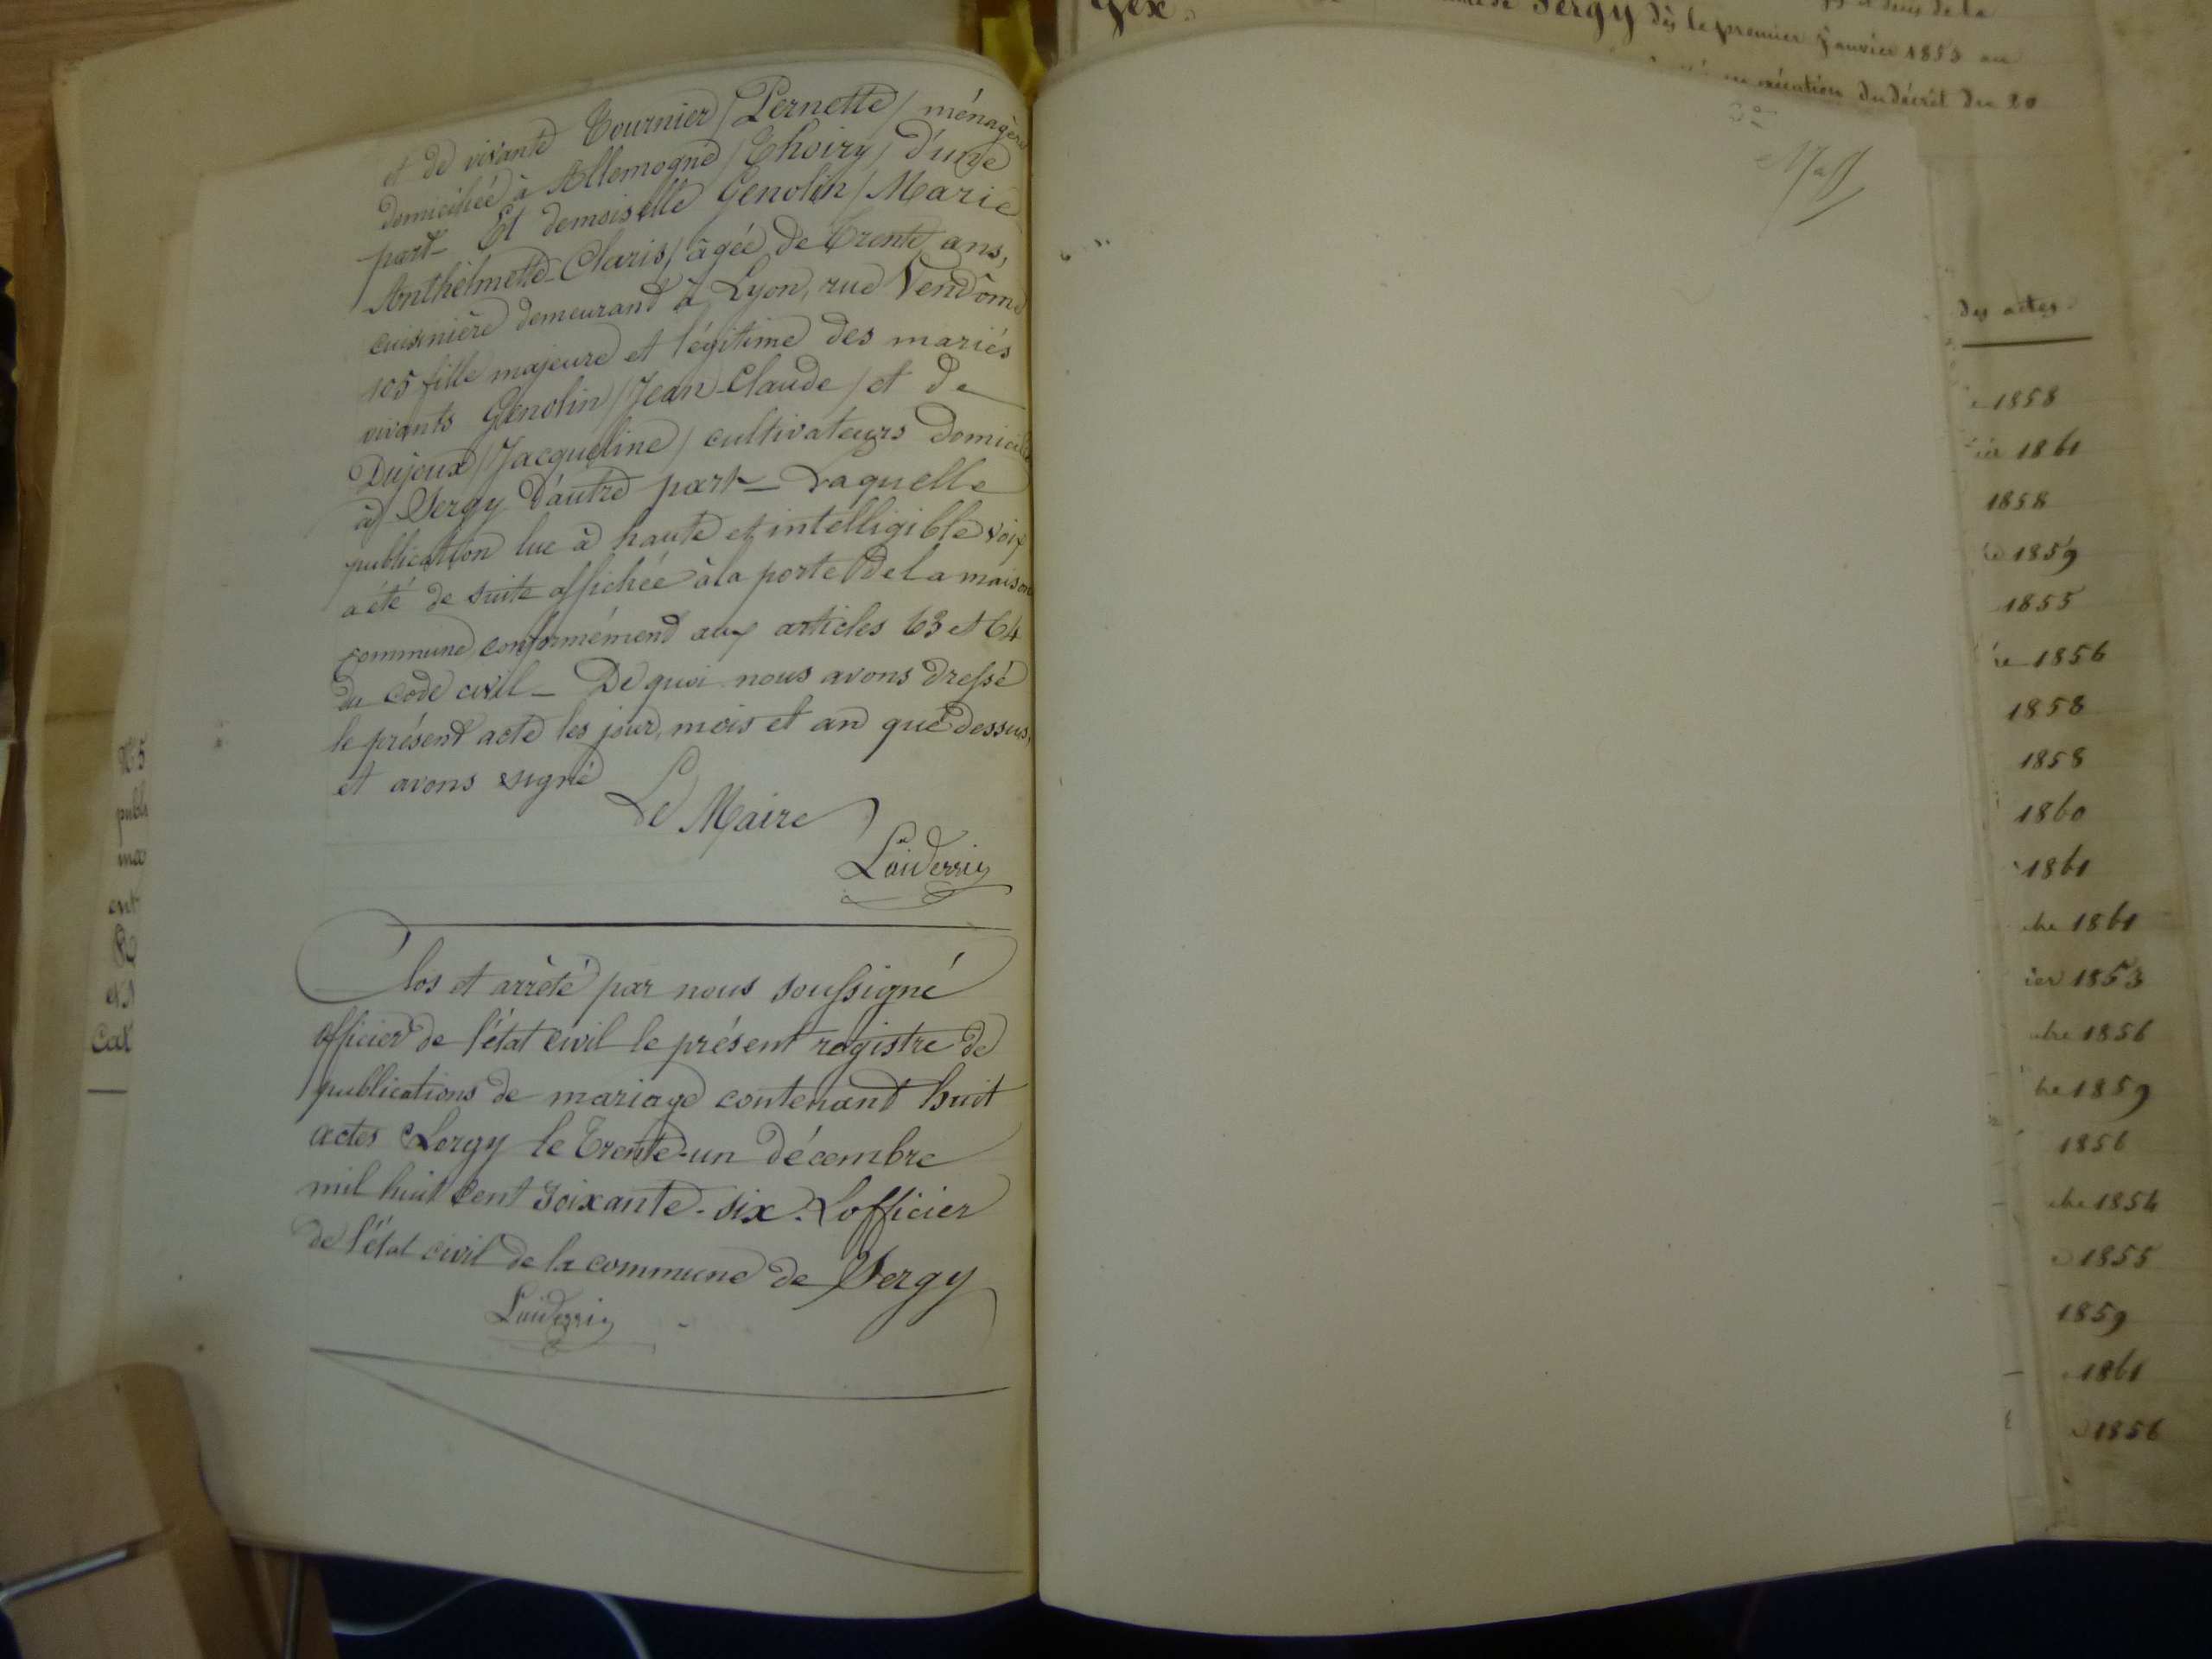 et de vivante Tournier / Pernette / ménagère
domiciliée à Allemogne / Thoiry / d'une
part - Et demoiselle Genolin / Marie
Anthelmette-Claris / âgée de trente ans,
cuisinière demeurant à Lyon, rue Vendôme
105 fille majeure et légitime des mariés
vivants Genolin / Jean-Claude / et de
Dujoux / Jacqueline / cultivateurs domiciliés
à Sergy d'autre part - Laquelle
publication lue à haute et intelligible voix
a été de suite affichée à la porte de la maison
commune, conformément aux articles 63 et 64
du code civil - De quoi nous avons dressé
le présent acte les jour, mois et an que dessus,
et avons signé
Le Maire
Clos et arrêté par nous soussigné
officier de l'état civil le présent registre de
publications de mariage contenant huit
actes Sergy le trente-un décembre
mil huit cent soixante-six. L'officier
de l'état civil de la commune de Sergy
Gex.
Sergy dès le premier janvier 1853 au
exécution du décret du 20
des actes
1858
1861
1858
1859
1855
1856
1858
1858
1860
1861
1861
1853
1856
1859
1856
1854
1855
1859
1861
1856
N° 5
publi
ma
ent
Cat